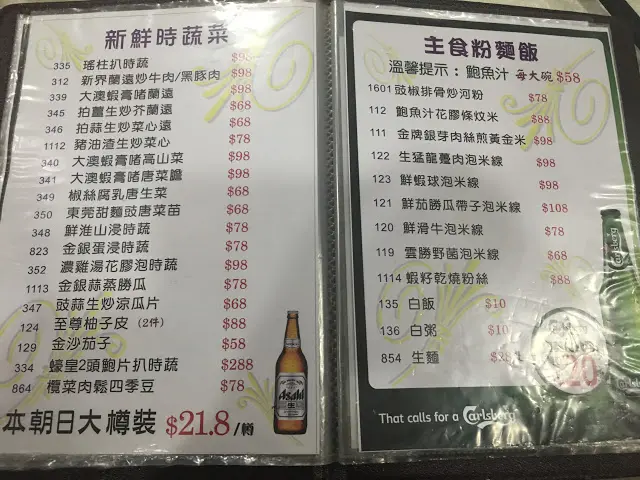 新鮮時蔬菜
335 瑤柱扒時蔬 $98
312 新界蘭遠炒牛肉/黑豚肉 $98
339 大澳蝦膏啫蘭遠 $98
345 拍薑生炒芥蘭遠 $68
346 拍蒜生炒菜心遠 $68
1112 豬油渣生炒菜心 $78
340 大澳蝦膏啫高山菜 $98
341 大澳蝦膏啫唐菜膽 $98
349 椒絲腐乳唐生菜 $68
350 東莞甜麵豉唐菜苗 $68
348 鮮淮山浸時蔬 $78
823 金銀蛋浸時蔬 $78
352 濃雞湯花膠泡時蔬 $98
1113 金銀蒜蒸勝瓜 $78
347 豉蒜生炒涼瓜片 $68
124 至尊柚子皮 (2件) $88
129 金沙茄子 $58
334 蠔皇2頭鮑片扒時蔬 $288
864 欖菜肉鬆四季豆 $78
本朝日大樽裝 $21.8/樽
Asahi
主食粉麵飯
溫馨提示：鮑魚汁 每大碗 $58
1601 豉椒排骨炒河粉 $78
112 鮑魚汁花膠條炆米 $88
111 金牌銀芽肉絲煎黃金米 $98
122 生猛龍躉肉泡米線 $98
123 鮮蝦球泡米線 $98
121 鮮茄勝瓜帶子泡米線 $108
120 鮮滑牛泡米線 $78
119 雲勝野菌泡米線 $68
1114 蝦籽乾燒粉絲 $88
135 白飯 $10
136 白粥 $10
854 生麵
$20
That calls for a Carlsberg